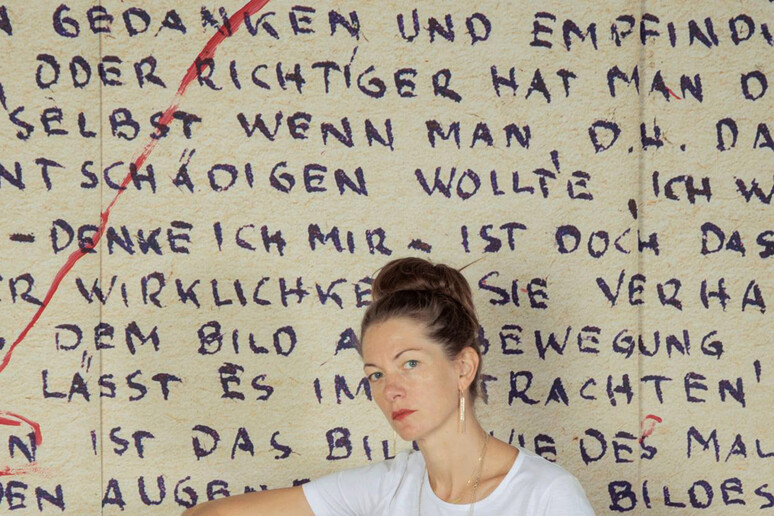 N GEDANKEN UND EMPFINDU
ODER RICHTIGER HAT MAN D
SELBST WENN MAN, D.H. DA
NTSCHÄDIGEN WOLLTE, ICH W
- DENKE ICH MIR - IST DOCH DAS
ER WIRKLICHKE SIE VERHA
DEM BILD A BEWEGUNG
LÄSST ES IM TRACHTEN
N IST DAS BIL WIE DES MAL
DEN AUGE BILDES